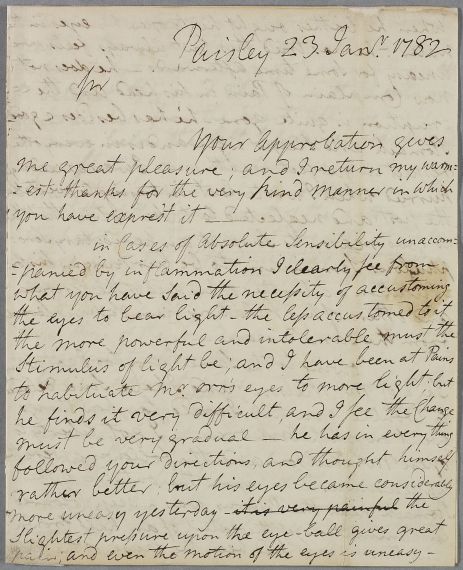 Paisley 23 Janʳ. 1782
Sir
Your Approbation gives
me great pleasure, and I return my warm-
-est thanks for the very kind manner in which
you have exprest it ———
in Cases of Absolute Sensibility unaccom-
-panied by inflammation I clearly see from
what you have said the necessity of accustoming
the eyes to bear light - the less accustomed to it
the more powerful and intolerable must the
Stimulus of light be; and I have been at Pains
to habituate Mr. Orr's eyes to more light. but
he finds it very difficult, and I see the Change
must be very gradual — he has in every thing
followed your directions, and thought himself
rather better, but his eyes became considerably
more uneasy yesterday - it is very painful the
Slightest pressure upon the eye-ball gives great
pain, and even the motion of the eyes is uneasy -